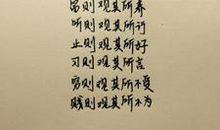 富则观其所养
听则观其所行
止则观其所好
习则观其所言
穷则观其所不受
贱则观其所不为